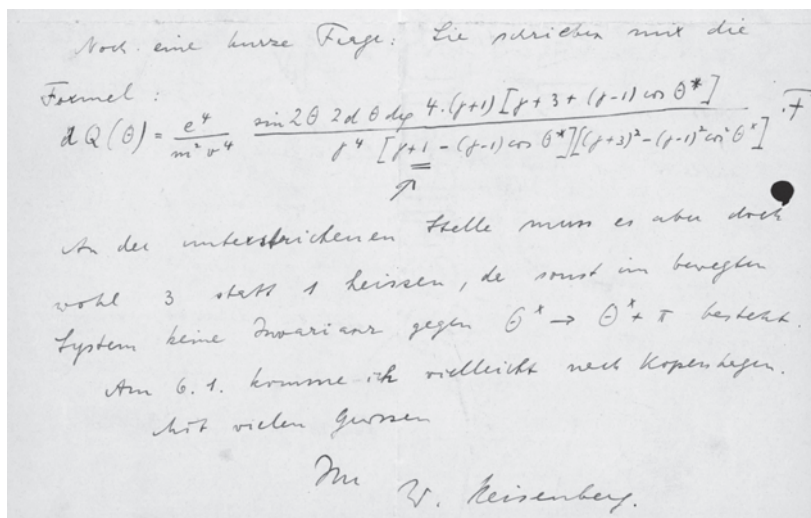 Noch eine kurze Frage: Sie schrieben mir die
Formel:
dQ(θ) = e⁴/m²v⁴ · sin 2θ 2dθ dφ 4·(γ+1)[γ+3+(γ-1)cos θ*] / γ⁴ [γ+1-(γ-1)cos θ*][(γ+3)²-(γ-1)²cos²θ*] · F
↗
An der unterstrichenen Stelle muss es aber doch
wohl 3 statt 1 heissen, da sonst im bewegten
System keine Invarianz gegen θ* → θ*+π besteht.
Am 6.1. komme ich vielleicht nach Kopenhagen.
Mit vielen Grüssen
Ihr
W. Heisenberg.